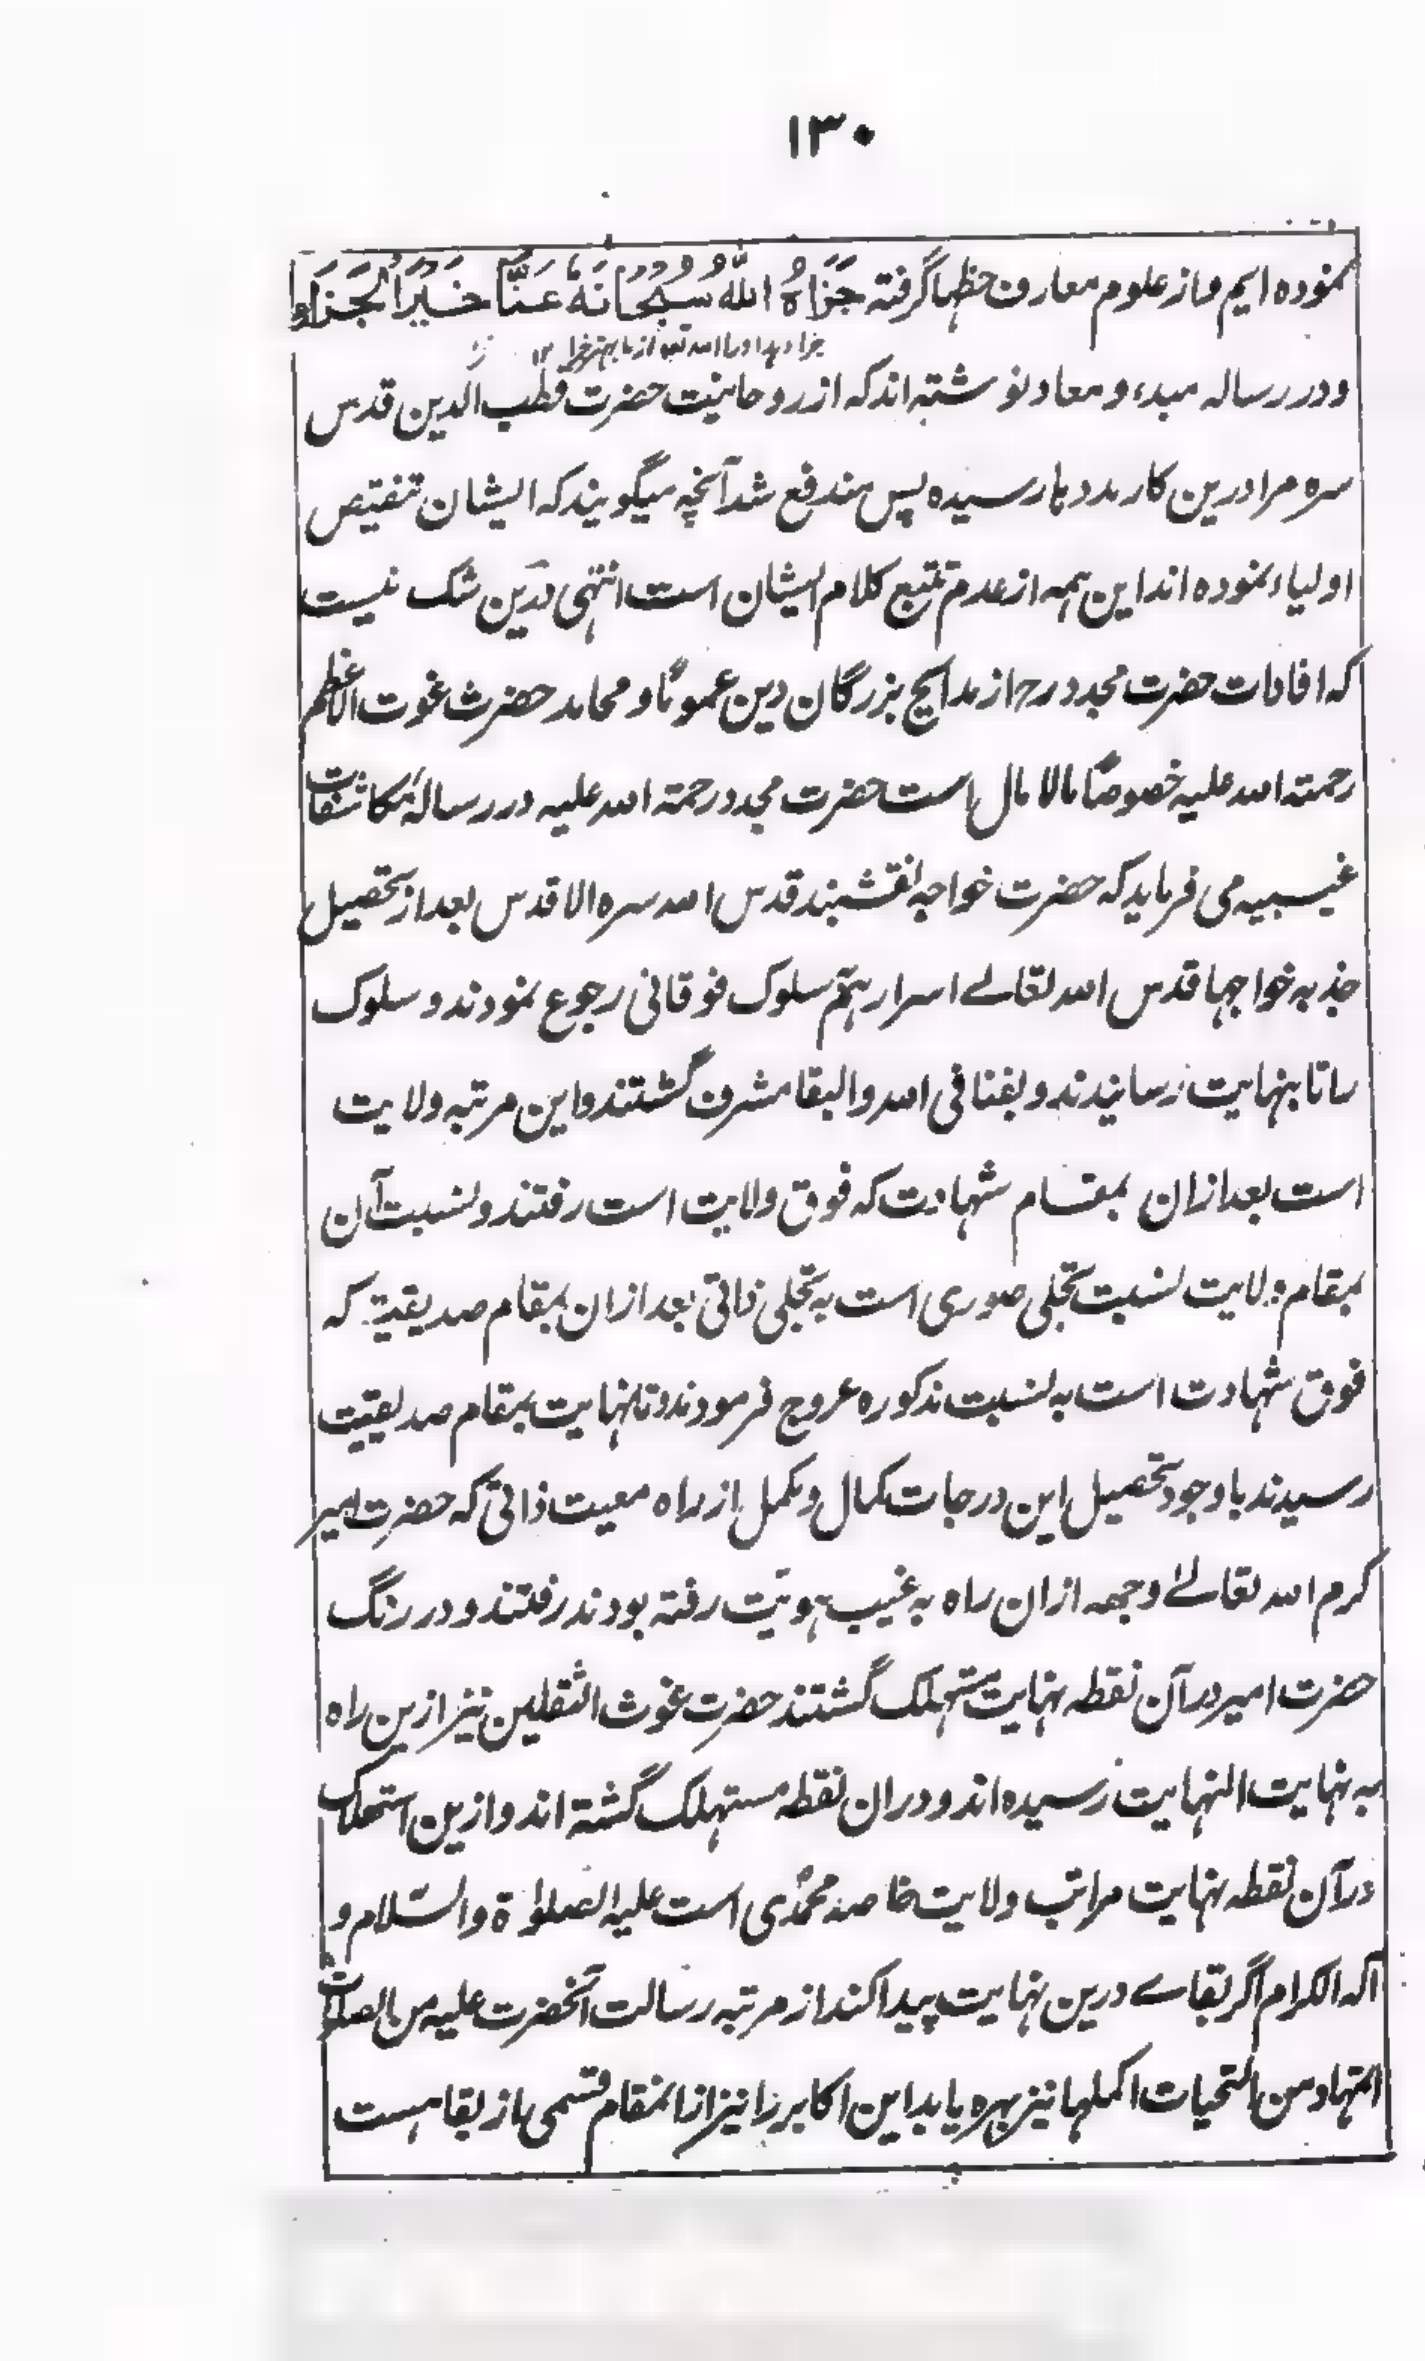 ۱۳۰
نموده ایم و از علوم معارف حظها گرفته جَزَاهُ اللّٰهُ سُبْحَانَهٗ عَنَّا خَیْرَ الْجَزَاءِ
و در رساله مبدء و معاد نوشته اند که از روحانیت حضرت قطب الدین قدس
سره مرا درین کار مددها رسیده پس مندفع شد آنچه میگویند که ایشان تنقیص
اولیاء نموده اند این همه از عدم تتبع کلام ایشان است انتهی درین شک نیست
که افادات حضرت مجدد رح از مدایح بزرگان دین عموماً و محامد حضرت غوث الاعظم
رحمته الله علیه خصوصاً مالا مال است حضرت مجدد رحمته الله علیه در رسالهٔ مکاشفات
غیبیه می فرماید که حضرت خواجه نقشبند قدس الله سره الاقدس بعد از تحصیل
جذبه خواجها قدس الله تعالے اسرارهم سلوک فوقانی رجوع نمودند و سلوک
را تا بنهایت رسانیدند و بفنا فی الله و البقا مشرف گشتند و این مرتبه ولایت
است بعد ازان بمقام شهادت که فوق ولایت است رفتند و نسبت آن
بمقام ولایت نسبت تجلی صوری است به تجلی ذاتی بعد ازان بمقام صدیقیة که
فوق شهادت است به نسبت مذکوره عروج فرمودند و تا نهایت بمقام صدیقیت
رسیدند با وجود تحصیل این درجات کمال و مکمل از راه معیت ذاتی که حضرت امیر
کرم الله تعالےٰ وجهه ازان راه به غیب هوئیت رفته بودند رفتند و در رنگ
حضرت امیر در آن نقطه نهایت مستهلک گشتند حضرت غوث الثقلین نیز ازین راه
به نهایت النهایت رسیده اند و دران نقطه مستهلک گشته اند و ازین استهلاک
در آن نقطه نهایت مراتب ولایت خاصه محمدی است علیه الصلوٰة والسّلام و
آله الکرام اگر بقاے درین نهایت پیدا کند از مرتبه رسالت آنحضرت علیه من الصلوات
اتمها و من التحیات اکملها نیز بهره یابد این اکابر را نیز از انمقام قسمی از بقا هست